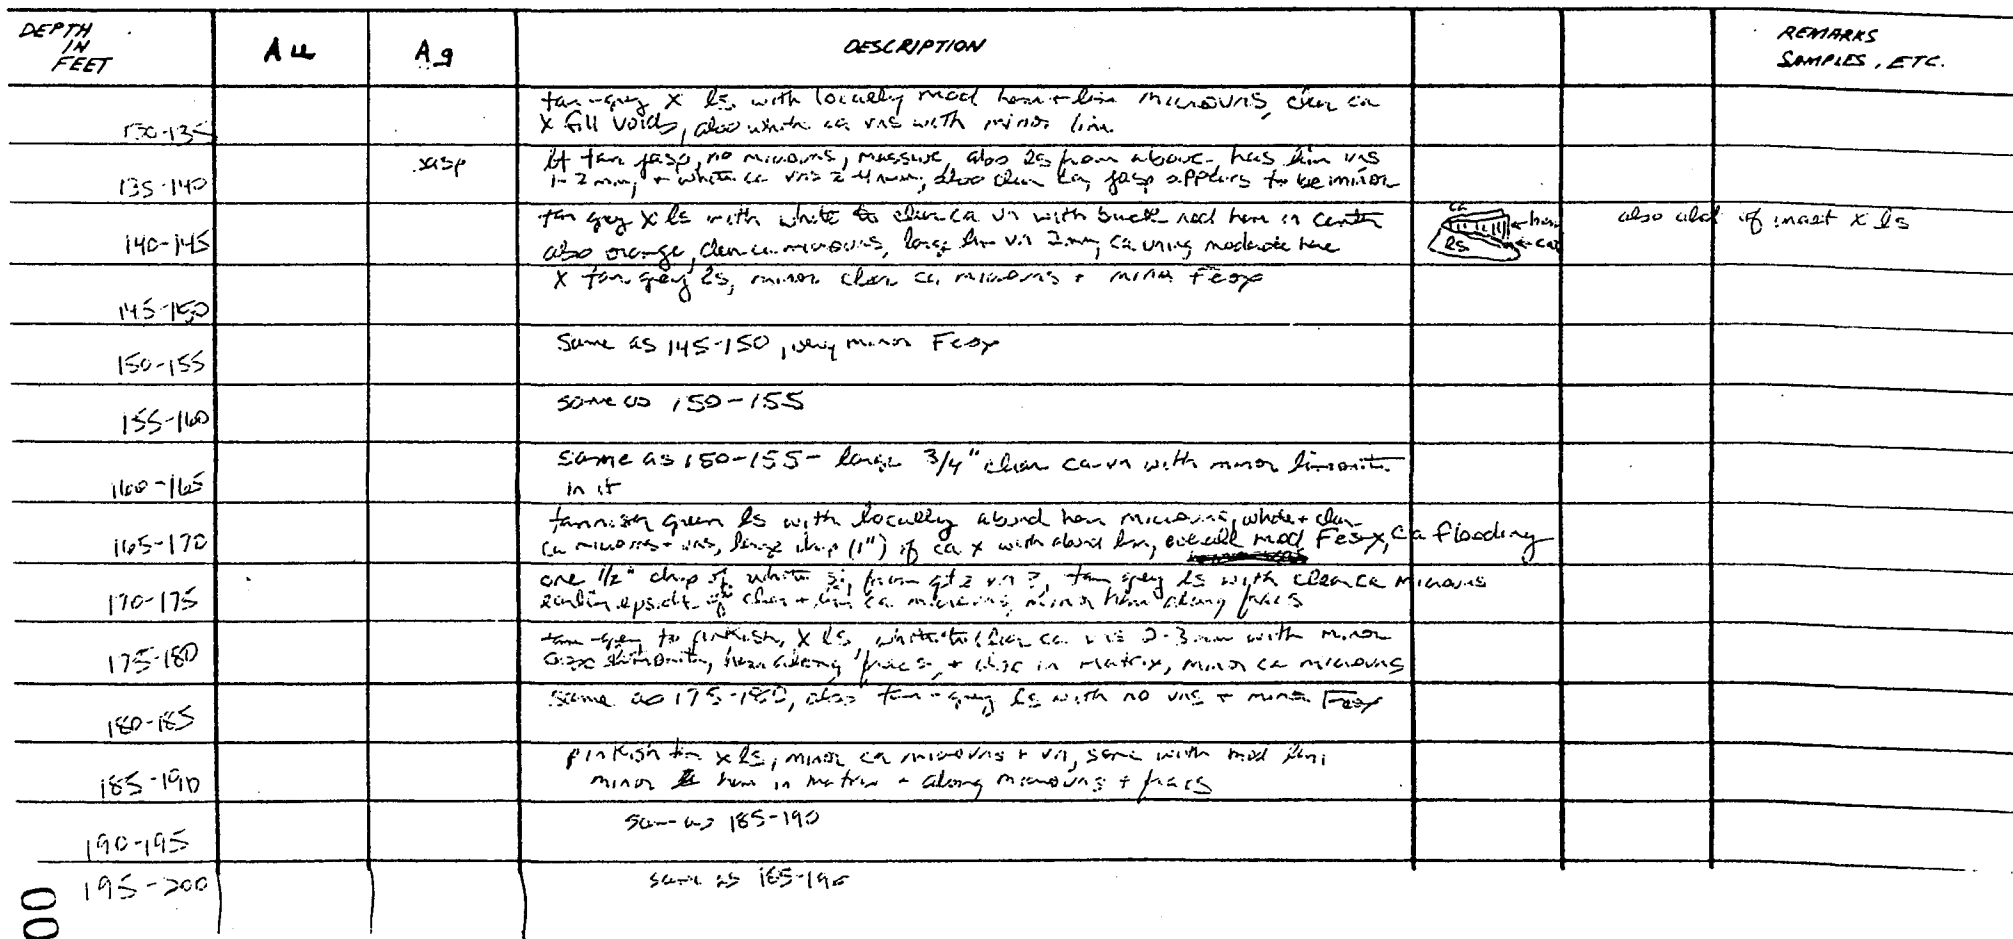 DEPTH IN FEET Au Ag DESCRIPTION REMARKS SAMPLES, ETC.
tan-grey X ls with locally mod hem + lim microvns, clear ca
130-135 X fill voids, also white ca vns with minor lim
jasp lt tan jasp, no microvns, massive, also ls from above - has lim vns
135-140 1-2 mm, + white ca vns 2-4 mm, also clear ca, jasp appears to be minor
tan grey X ls with white to clear ca vn with red hem in center
140-145 also orange, clear ca microvns, large lim vn 2mm, ca moderate
ca
hem
ca
ls
also of X ls
X tan-grey ls, minor clear ca microvns + minor Feox
145-150
same as 145-150, very minor Feox
150-155
same as 150-155
155-160
same as 150-155 - large 3/4" clear ca vn with minor limonite
160-165 in it
tannish green ls with locally abund hem microvns, white + clear
165-170 ca microvns + vns, large chip (1") of ca x with abund lim, overall mod Feox, ca flooding
one 1/2" chip of white si, from qtz vn?, tan grey ls with clear ca microvns
170-175 of clear + lim ca microvns, minor hem along fracs
tan-grey to pinkish, X ls, white to clear ca vns 2-3 mm with minor
175-180 limonite, hem along fracs, + also in matrix, minor ca microvns
same as 175-180, also tan-grey ls with no vns + minor Feox
180-185
pinkish tan x ls, minor ca microvns + vn, some with mod lim,
185-190 minor hem in matrix + along microvns + fracs
same as 185-190
190-195
195-200 same as 185-190
00